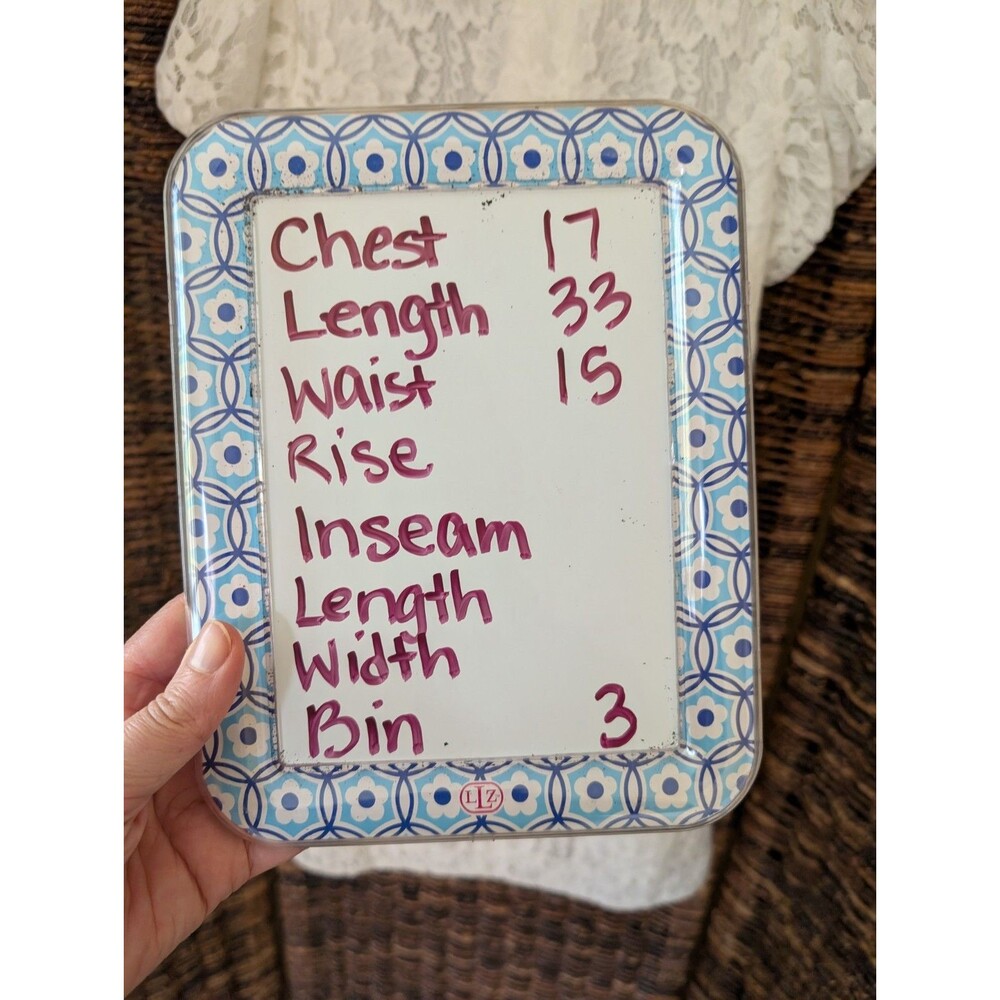 Chest 17
Length 33
Waist 15
Rise
Inseam
Length
Width
Bin 3
LLZ